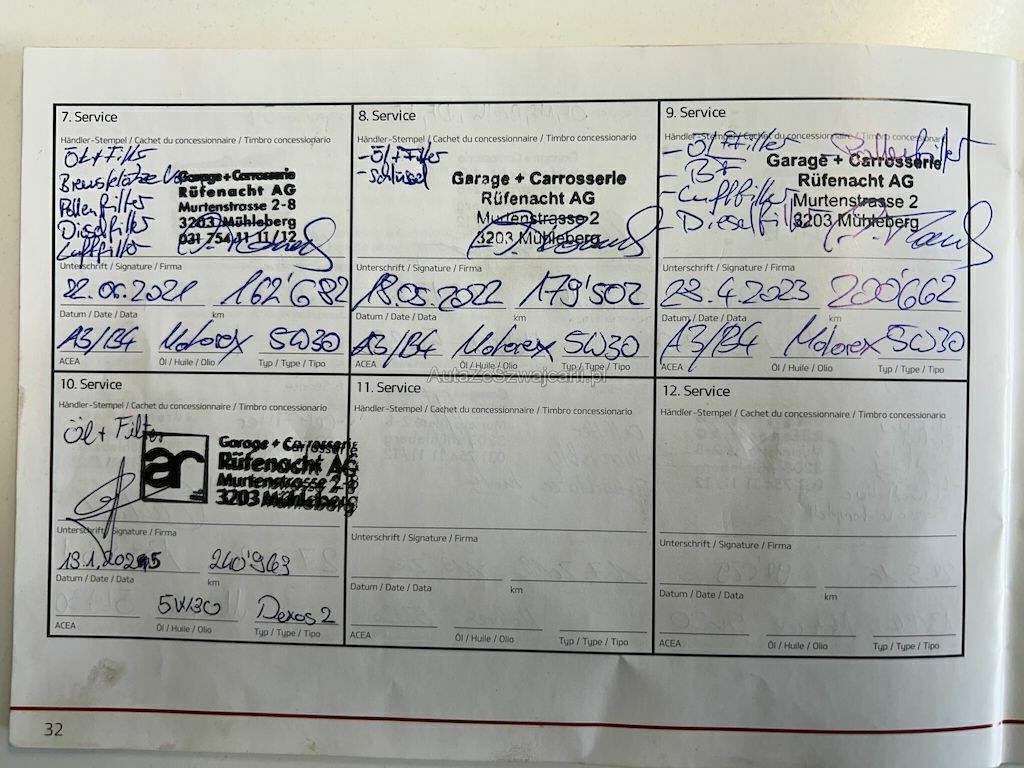 7. Service
Händler-Stempel / Cachet du concessionnaire / Timbro concessionario
Öl + Filter
Pollenfilter
Dieselfilter
Luftfilter
Garage + Carrosserie
Rüfenacht AG
Murtenstrasse 2-8
3203 Mühleberg
031 754 11 11 / 12
Unterschrift / Signature / Firma
22.06.2021 162'682
Datum / Date / Data km
A3/B4 Motorex 5W30
ACEA Öl / Huile / Olio Typ / Type / Tipo
8. Service
Händler-Stempel / Cachet du concessionnaire / Timbro concessionario
- Öl + Filter
- Schlüssel
Garage + Carrosserie
Rüfenacht AG
Murtenstrasse 2
3203 Mühleberg
Unterschrift / Signature / Firma
18.05.2022 179'502
Datum / Date / Data km
A3/B4 Motorex 5W30
ACEA Öl / Huile / Olio Typ / Type / Tipo
9. Service
Händler-Stempel / Cachet du concessionnaire / Timbro concessionario
- Öl + Filter Pollenfilter
- BF
- Luftfilter
- Dieselfilter
Garage + Carrosserie
Rüfenacht AG
Murtenstrasse 2
3203 Mühleberg
Unterschrift / Signature / Firma
28.4.2023 200'662
Datum / Date / Data km
A3/B4 Motorex 5W30
ACEA Öl / Huile / Olio Typ / Type / Tipo
10. Service
Händler-Stempel / Cachet du concessionnaire / Timbro concessionario
Öl + Filter
ar
Garage + Carrosserie
Rüfenacht AG
Murtenstrasse 2-8
3203 Mühleberg
Unterschrift / Signature / Firma
13.1.2025 240'963
Datum / Date / Data km
5W30 Dexos 2
ACEA Öl / Huile / Olio Typ / Type / Tipo
11. Service
Händler-Stempel / Cachet du concessionnaire / Timbro concessionario
Unterschrift / Signature / Firma
Datum / Date / Data km
ACEA Öl / Huile / Olio Typ / Type / Tipo
12. Service
Händler-Stempel / Cachet du concessionnaire / Timbro concessionario
Unterschrift / Signature / Firma
Datum / Date / Data km
ACEA Öl / Huile / Olio Typ / Type / Tipo
AutaZeSzwajcarii.pl
32